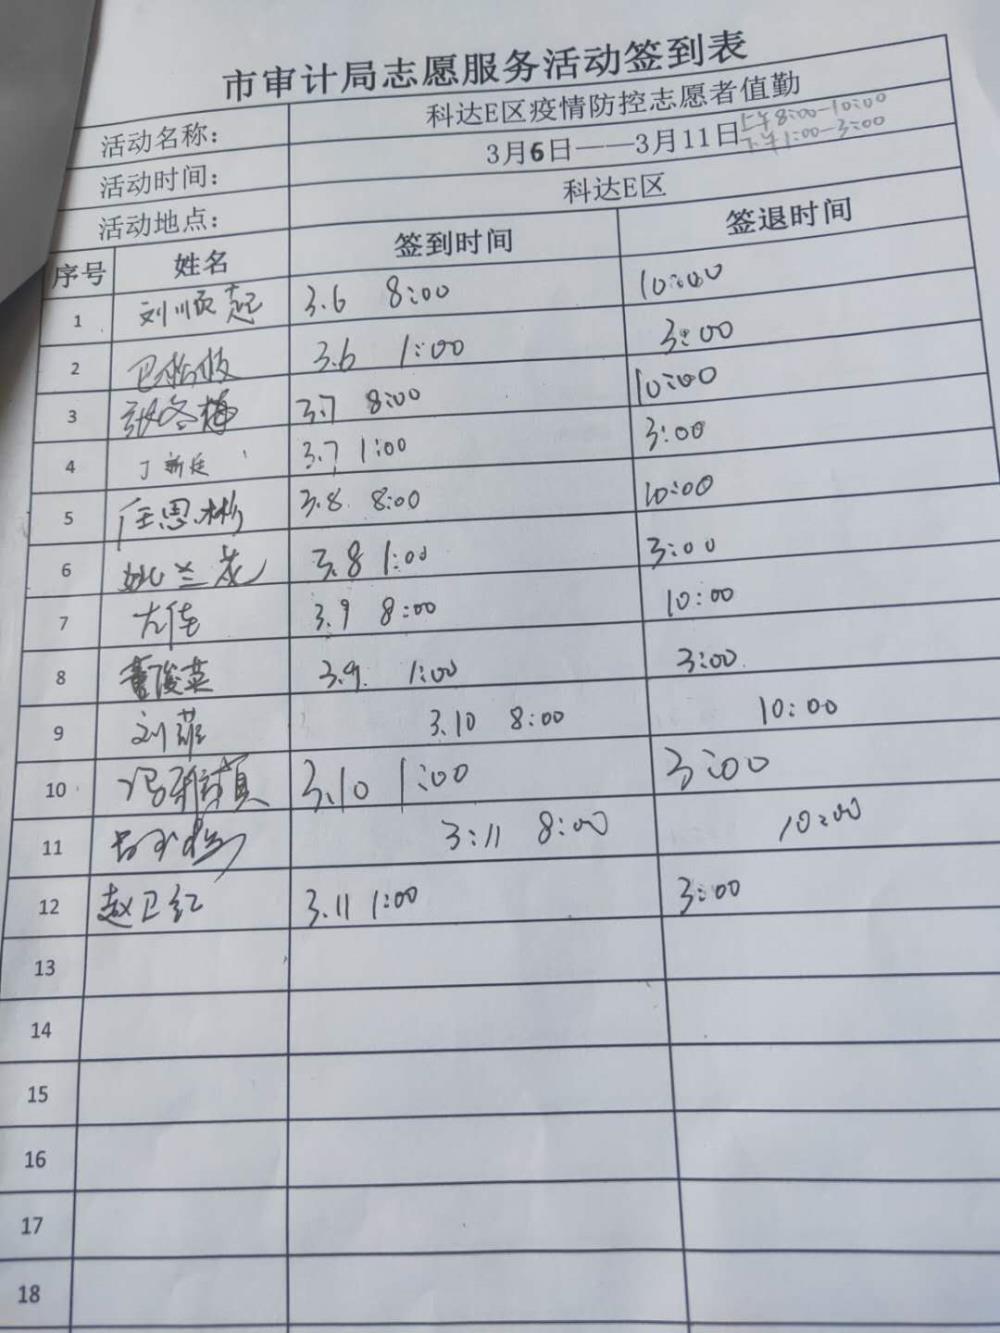 市审计局志愿服务活动签到表
活动名称: 科达E区疫情防控志愿者值勤
活动时间: 3月6日——3月11日 上午8:00-10:00
下午1:00-3:00
活动地点: 科达E区
序号 姓名 签到时间 签退时间
1 刘顺起 3.6 8:00 10:00
2 3.6 1:00 3:00
3 张冬梅 3.7 8:00 10:00
4 丁新廷 3.7 1:00 3:00
5 任思彬 3.8 8:00 10:00
6 姚兰花 3.8 1:00 3:00
7 3.9 8:00 10:00
8 董俊英 3.9. 1:00 3:00
9 刘菲 3.10 8:00 10:00
10 3.10 1:00 3:00
11 3:11 8:00 10:00
12 赵卫红 3.11 1:00 3:00
13
14
15
16
17
18